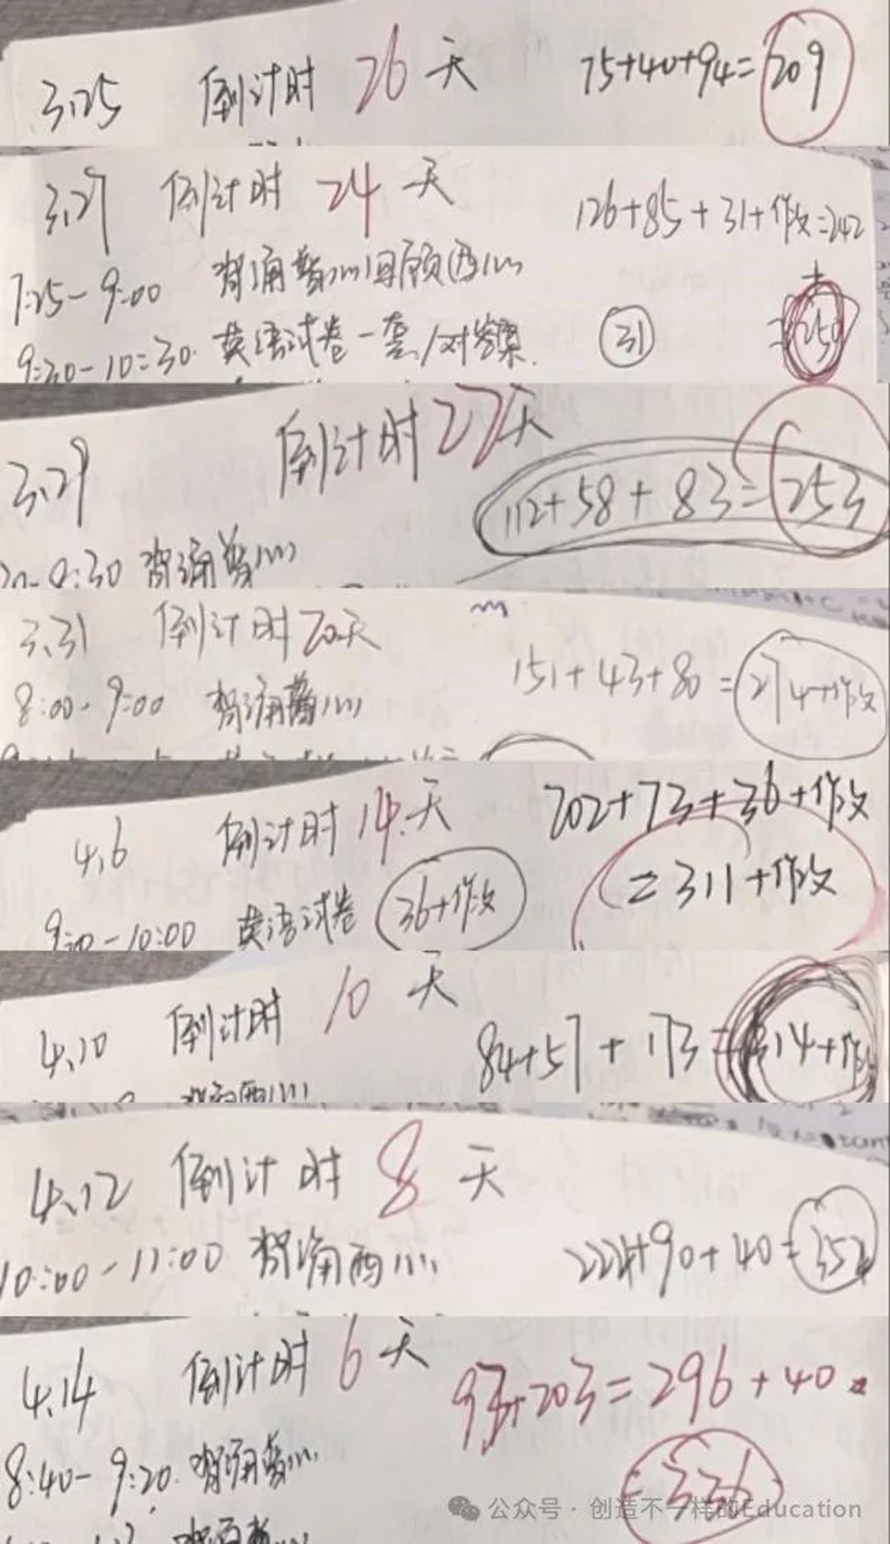 3.25 倒计时 26 天 75+40+94=209
3.27 倒计时 24 天
126+85+31+作文=242
7:25-9:00 背诵
+
9:30-10:30 英语试卷一套/对答案 31 =250
3.29 倒计时 22天
112+58+83=253
背诵
3.31 倒计时 20天
151+43+80=274+作文
8:00-9:00 背诵
4.6 倒计时 14天 202+73+36+作文
=311+作文
-10:00 英语试卷 36+作文
4.10 倒计时 10 天
84+57+173=314+作文
4.12 倒计时 8 天
10:00-11:00 背诵
224+90+40=354
4.14 倒计时 6 天 93+203=296+40
8:40-9:20 背诵 =336
公众号·创造不一样的Education